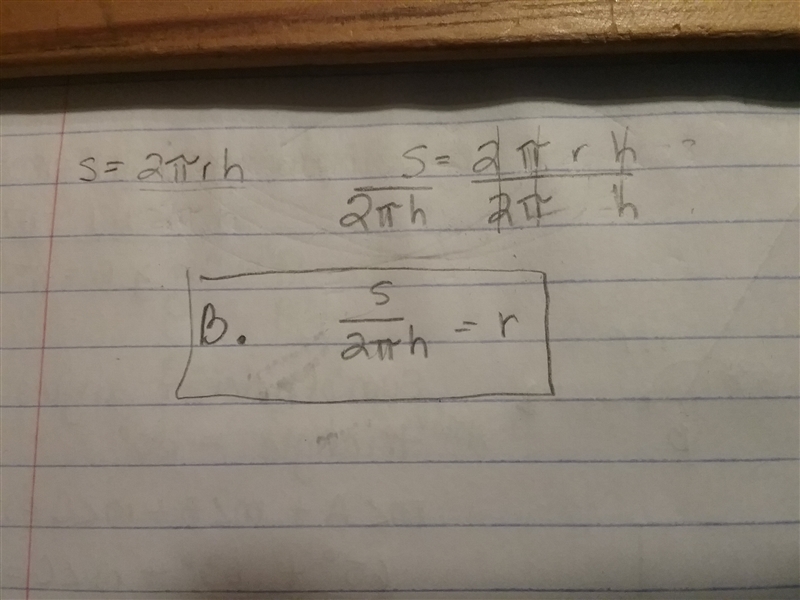 s = 2πrh
s = 2 π r h
2πh 2π h
B. s
2πh = r